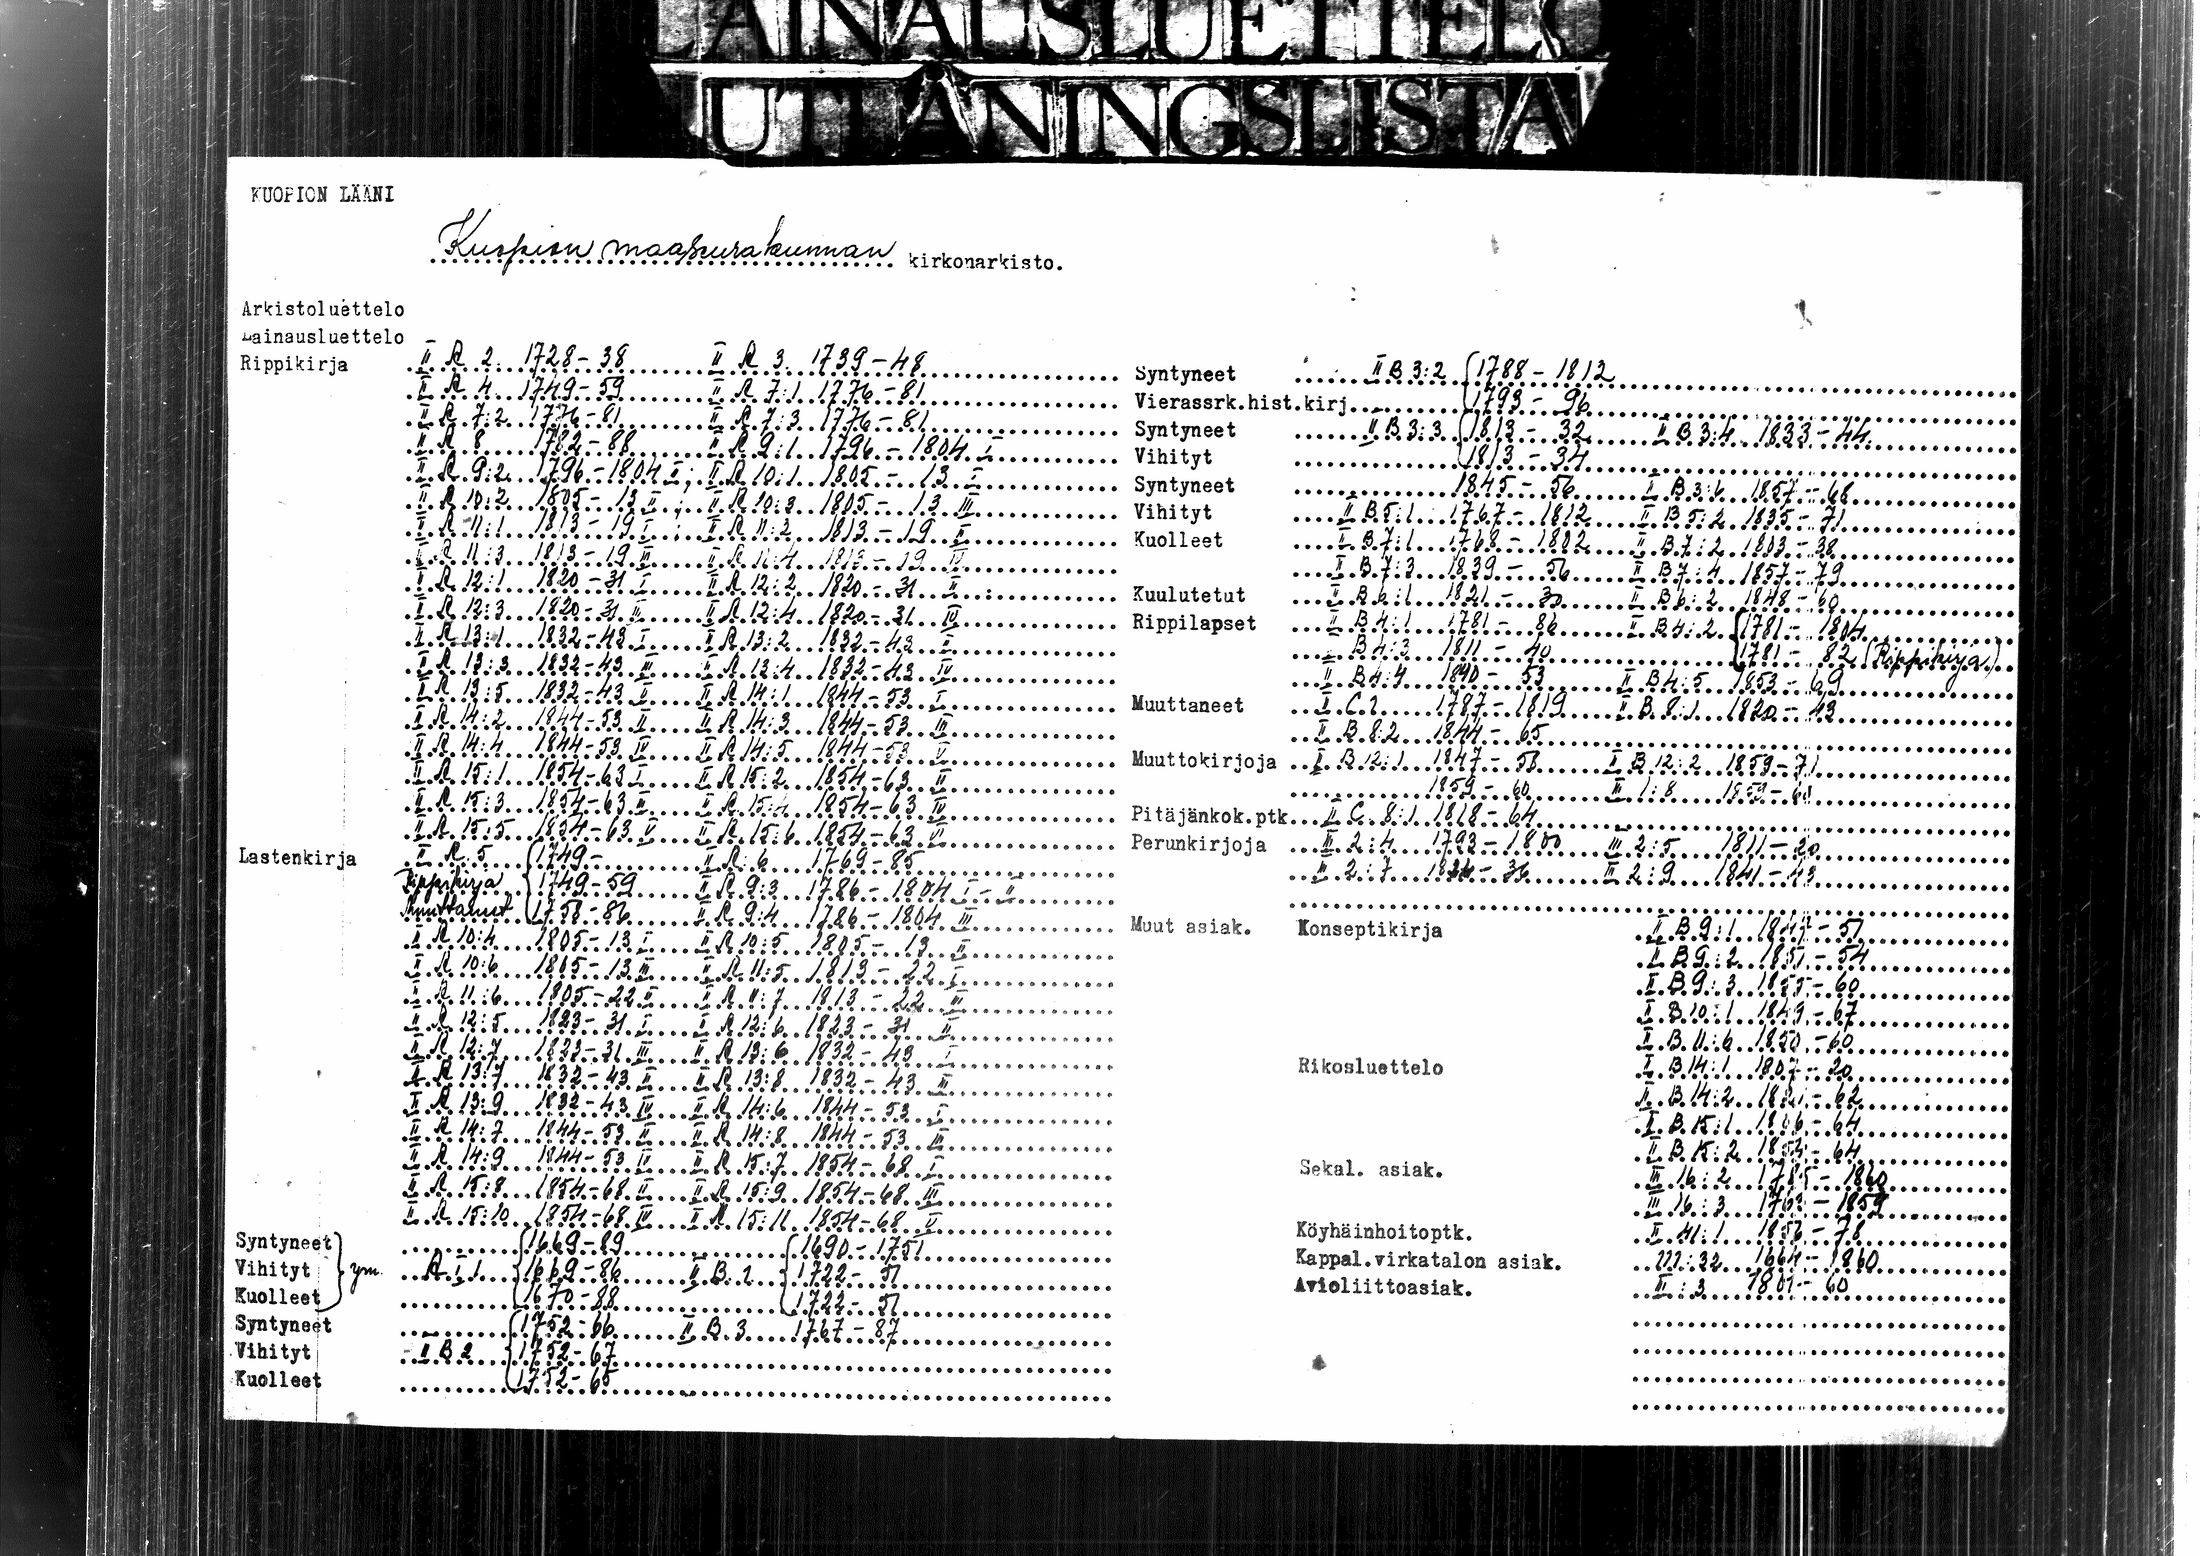 LAINAUSLUETTELO
UTLÅNINGSLISTA
KUOPION LÄÄNI
Kuopion maaseurakunnan kirkonarkisto.
Arkistoluettelo
Lainausluettelo
Rippikirja II A 2 1728-38 II A 3 1739-48
II A 4 1749-59 II A 7:1 1776-81
II A 7:2 1776-81 II A 7:3 1776-81
II A 8 1782-88 II A 9:1 1796-1804 I
II A 9:2 1796-1804 II; II A 10:1 1805-13 I
II A 10:2 1805-13 II; II A 10:3 1805-13 III
II A 11:1 1813-19 I; II A 11:2 1813-19 II
II A 11:3 1813-19 III II A 11:4 1813-19 IV
II A 12:1 1820-31 I II A 12:2 1820-31 II
II A 12:3 1820-31 III II A 12:4 1820-31 IV
II A 13:1 1832-43 I II A 13:2 1832-43 II
II A 13:3 1832-43 III II A 13:4 1832-43 IV
II A 13:5 1832-43 V II A 14:1 1844-53 I
II A 14:2 1844-53 II II A 14:3 1844-53 III
II A 14:4 1844-53 IV II A 14:5 1844-53 V
II A 15:1 1854-63 I II A 15:2 1854-63 II
II A 15:3 1854-63 III II A 15:4 1854-63 IV
II A 15:5 1854-63 V II A 15:6 1854-63 VI
Lastenkirja II A 5 1749- II A 6 1769-85
Rippikirja 1749-59 II A 9:3 1786-1804 I-II
Muuttaneet 1758-86 II A 9:4 1786-1804 III
II A 10:4 1805-13 I II A 10:5 1805-13 II
II A 10:6 1805-13 III II A 11:5 1813-22 I
II A 11:6 1805-22 II II A 11:7 1813-22 III
II A 12:5 1823-31 I II A 12:6 1823-31 II
II A 12:7 1823-31 III II A 13:6 1832-43 I
II A 13:7 1832-43 II II A 13:8 1832-43 III
II A 13:9 1832-43 IV II A 14:6 1844-53 I
II A 14:7 1844-53 II II A 14:8 1844-53 III
II A 14:9 1844-53 IV II A 15:7 1854-68 I
II A 15:8 1854-68 II II A 15:9 1854-68 III
II A 15:10 1854-68 IV II A 15:11 1854-68 V
Syntyneet 1669-89 1690-1751
Vihityt ym. A I 1 1669-86 II B:1 1722-51
Kuolleet 1670-88 1722-51
Syntyneet 1752-66 II B.3 1767-87
Vihityt II B 2 1752-67
Kuolleet 1752-65
Syntyneet II B 3:2 1788-1812
Vierassrk.hist.kirj. 1793-96
Syntyneet II B 3:3 1813-32 II B 3:4 1833-44
Vihityt 1813-34
Syntyneet 1845-56 II B 3:6 1857-68
Vihityt II B 5:1 1767-1812 II B 5:2 1835-71
Kuolleet II B 7:1 1768-1802 II B 7:2 1803-38
II B 7:3 1839-56 II B 7:4 1857-79
Kuulutetut II B 6:1 1821-30 II B 6:2 1848-60
Rippilapset II B 4:1 1781-86 II B 4:2 1781-1804
II B 4:3 1811-40 1781-82 (Rippikirja)
II B 4:4 1840-53 II B 4:5 1853-69
Muuttaneet II C.1 1787-1819 II B 8:1 1820-43
II B 8:2 1844-65
Muuttokirjoja II B 12:1 1847-58 II B 12:2 1859-71
1859-60 III 1:8 1859-60
Pitäjänkok.ptk. II C 8:1 1818-64
Perunkirjoja III 2:4 1793-1800 III 2:5 1811-20
III 2:7 -36 III 2:9 1841-43
Muut asiak. Konseptikirja II B 9:1 -51
II B 9:2 1851-54
II B 9:3 1855-60
II B 10:1 1849-67
II B 11:6 1850-60
Rikosluettelo II B 14:1 1807-20
II B 14:2 1821-62
II B 15:1 -64
II B 15:2 -64
Sekal. asiak. III 16:2 -1860
III 16:3 -1859
Köyhäinhoitoptk. II 41:1 -78
Kappal.virkatalon asiak. III:32 1664-1860
Avioliittoasiak. II:3 1801-60